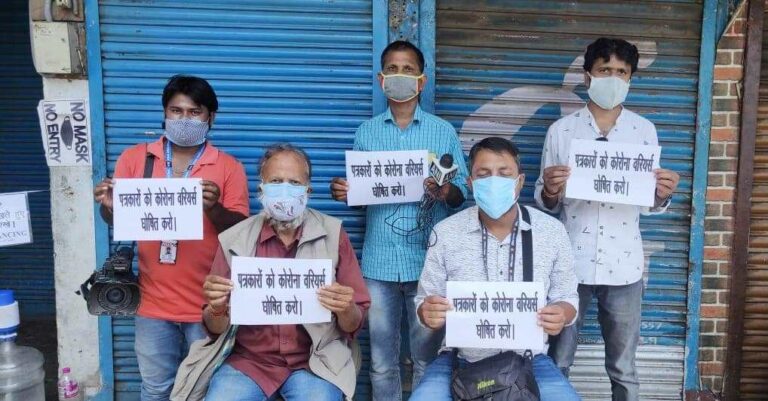 NO MASK
NO ENTRY
पत्रकारों को कोरोना वरियर्स
घोषित करो।
पत्रकारों को कोरोना वरियर्स
घोषित करो।
पत्रकारों को कोरोना वरियर्स
घोषित करो।
पत्रकारों को कोरोना वरियर्स
घोषित करो।
पत्रकारों को कोरोना वरियर्स
घोषित करो।
Nikon